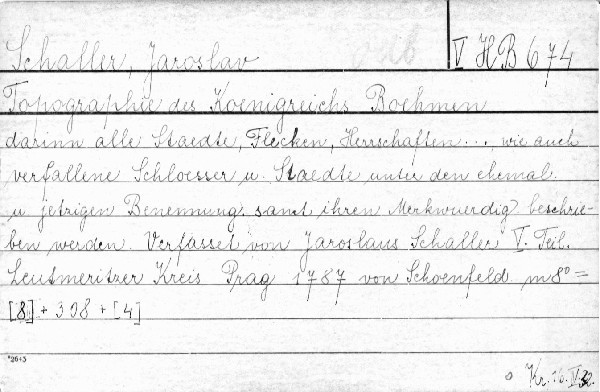 Schaller, Jaroslav V HB 674
Topographie des Koenigreichs Boehmen
darinn alle Staedte, Flecken, Herrschaften... wie auch
verfallene Schloesser u. Staedte unter den ehemal.
u jetzigen Benennung. samt ihren Merkwuerdig. beschrie-
ben werden. Verfasset von Jaroslaus Schaller V. Teil.
Leutmeritzer Kreis Prag 1787 von Schoenfeld m 8° =
[8] + 308 + [4]
*2643
Kr. 16. V 32.